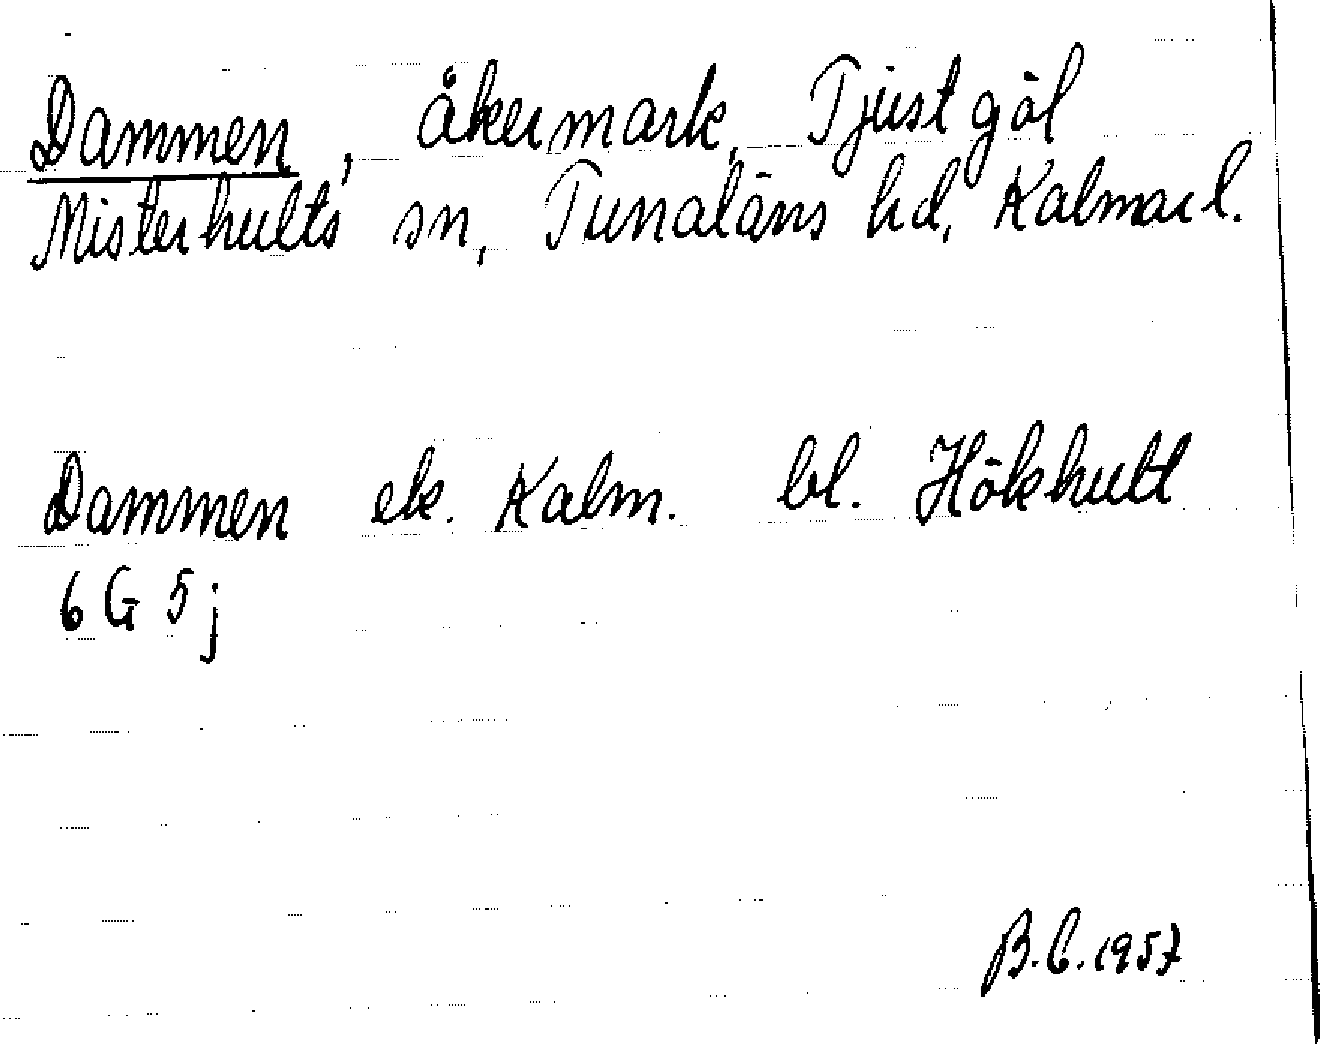 Dammen, åkermark, Tjustgöl
Misterhults sn, Tunaläns hd, Kalmar l.
Dammen ek. Kalm. bl. Hökhult
6 G 5 j
B.C. 1957